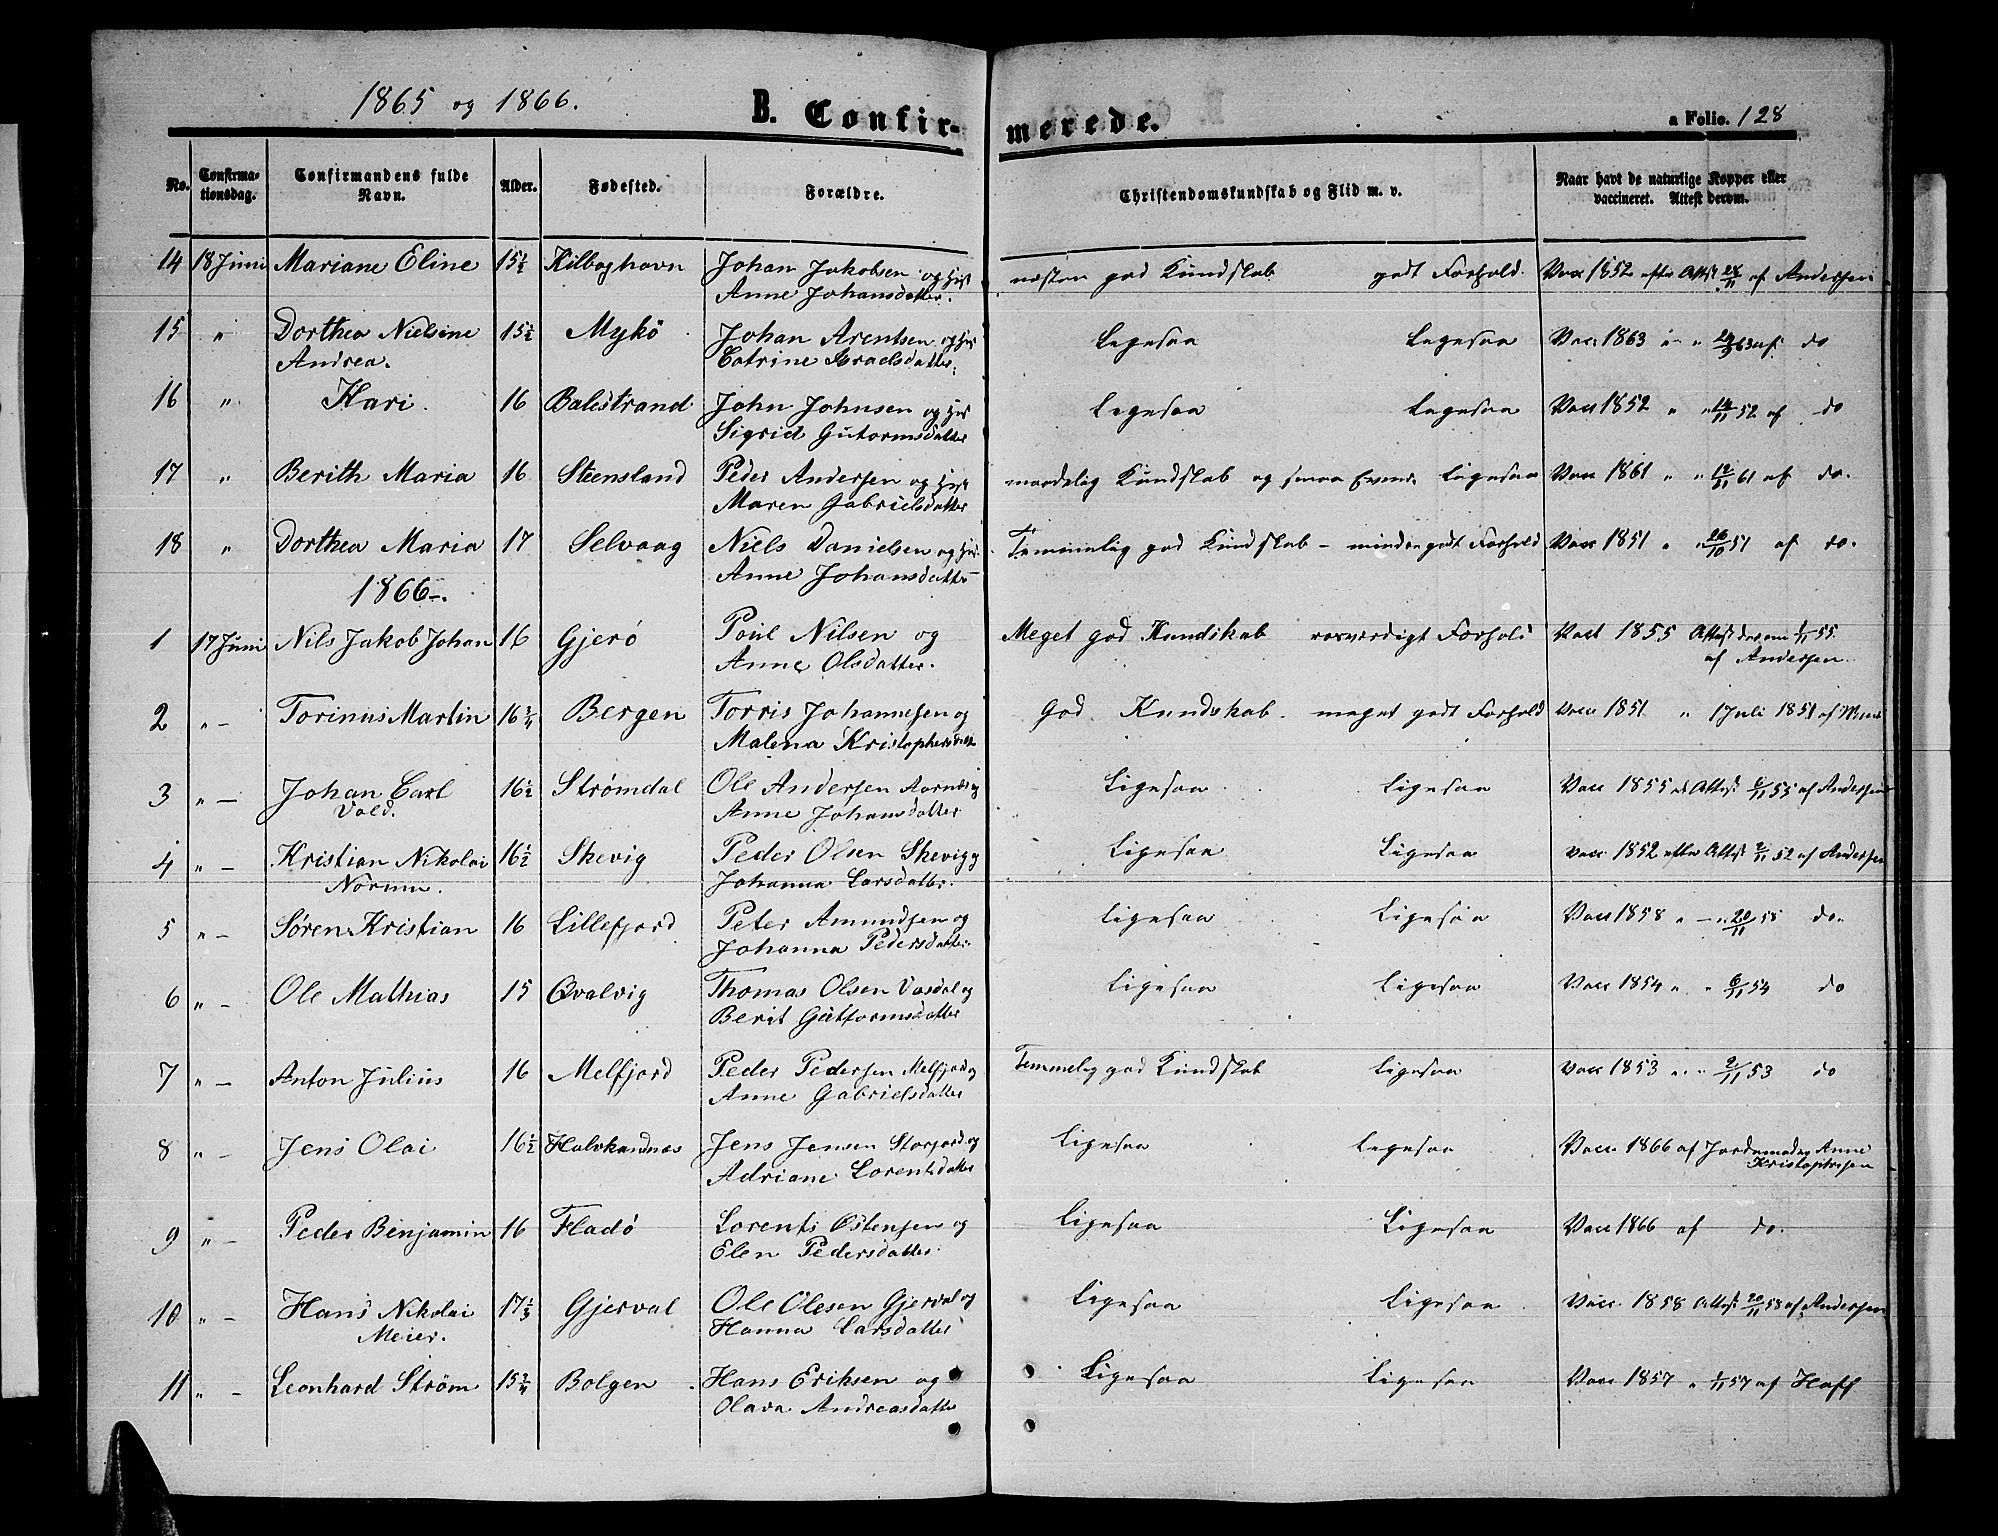 1865 og 1866.
B. Confirmerede.
a Folio. 128
No. Confirmationsdag. Confirmandens fulde Navn. Alder. Fødested. Forældre. Christendomskundskab og Flid m. v. Naar havt de naturlige Kopper eller vaccineret. Attest derom.
14 18 Juni Mariane Eline 15½ Kilboghavn Johan Jakobsen og Hust næsten god Kundskab godt Forhold. Vacc 1852 efter Attest 28/11 af Andersen
Anne Johansdatter.
15 " Dorthea Nielsine 15½ Mykö Johan Arentsen og Hust Ligesaa Ligesaa Vacc 1863 " " 63 af do
Andrea. Catrine Israelsdatter.
16 " Kari. 16 Balestrand John Johnsen og Hust Ligesaa Ligesaa Vacc 1852 " " 14/11 52 af do
Sigrid Gutormsdatter
17 " Berith Maria 16 Steensland Peder Andersen og Hust maadelig Kundskab og smaa Evner Ligesaa Vacc 1861 " " 12/11 61 af do.
Maren Gabrielsdatter
18 " Dorthea Maria 17 Selvaag Niels Danielsen og Hust Temmelig god Kundskab – mindre godt Forhold Vacc 1851 " " 26/10 51 af do.
Anne Johansdatter
1866.
1 17 Juni Nils Jakob Johan 16 Gjerö Poul Nilsen og Meget god Kundskab rosværdigt Forhold Vacc 1855 Attest derom 1/11 55.
Anne Olsdatter. af Andersen
2 " – Torinus Martin 16¾ Bergen Torris Johannesen og God Kundskab. meget godt Forhold Vacc 1851 " 1 Juli 1851 af
Malena Kristophersdatr
3 " – Johan Carl 16½ Strømdal Ole Andersen Aarnes og Ligesaa Ligesaa Vacc 1855 Attest 6/11 55 af Andersen
Vold. Anne Johansdatter
4 " – Kristian Nikolai 16½ Skevig Peder Olsen Skevig og Ligesaa Ligesaa Vacc 1852 efter Attest 2/11 52 af Andersen
Normn. Johanna Larsdatter.
5 " – Søren Kristian 16 Lillefjord Peter Amundsen og Ligesaa Ligesaa Vacc 1858 " – " 20/11 58 do.
Johanna Pedersdatter
6 " – Ole Mathias 15 Qvalvig Thomas Olsen Vasdal og Ligesaa Ligesaa Vacc 1854 " " 6/11 54 do
Berit Guttormsdatter
7 " – Anton Julius 16 Melfjord Peder Pedersen Melfjord og Temmelig god Kundskab Ligesaa Vacc 1853 " " 2/11 53 do
Anne Gabrielsdatter
8 " – Jens Olai 16½ Halvkandnæs Jens Jensen Storjord og Ligesaa Ligesaa Vacc. 1866 af Jordemoder Anne
Adriane Lorentsdatter Kristophersen
9 " – Peder Benjamin 16 Fladö Lorents Ostensen og Ligesaa Ligesaa Vacc 1866 af do.
Elen Pedersdatter
10 " – Hans Nikolai 17⅓ Gjerval Ole Olesen Gjerval og Ligesaa Ligesaa Vacc. 1858 Attest 20/11 58 af Andersen
Meier. Hanna Larsdatter
11 " – Leonhard Strøm 15¾ Bolgen Hans Eriksen og Ligesaa Ligesaa Vacc 1857 " 1/11 57 af Hoff
Olava Andreasdatter